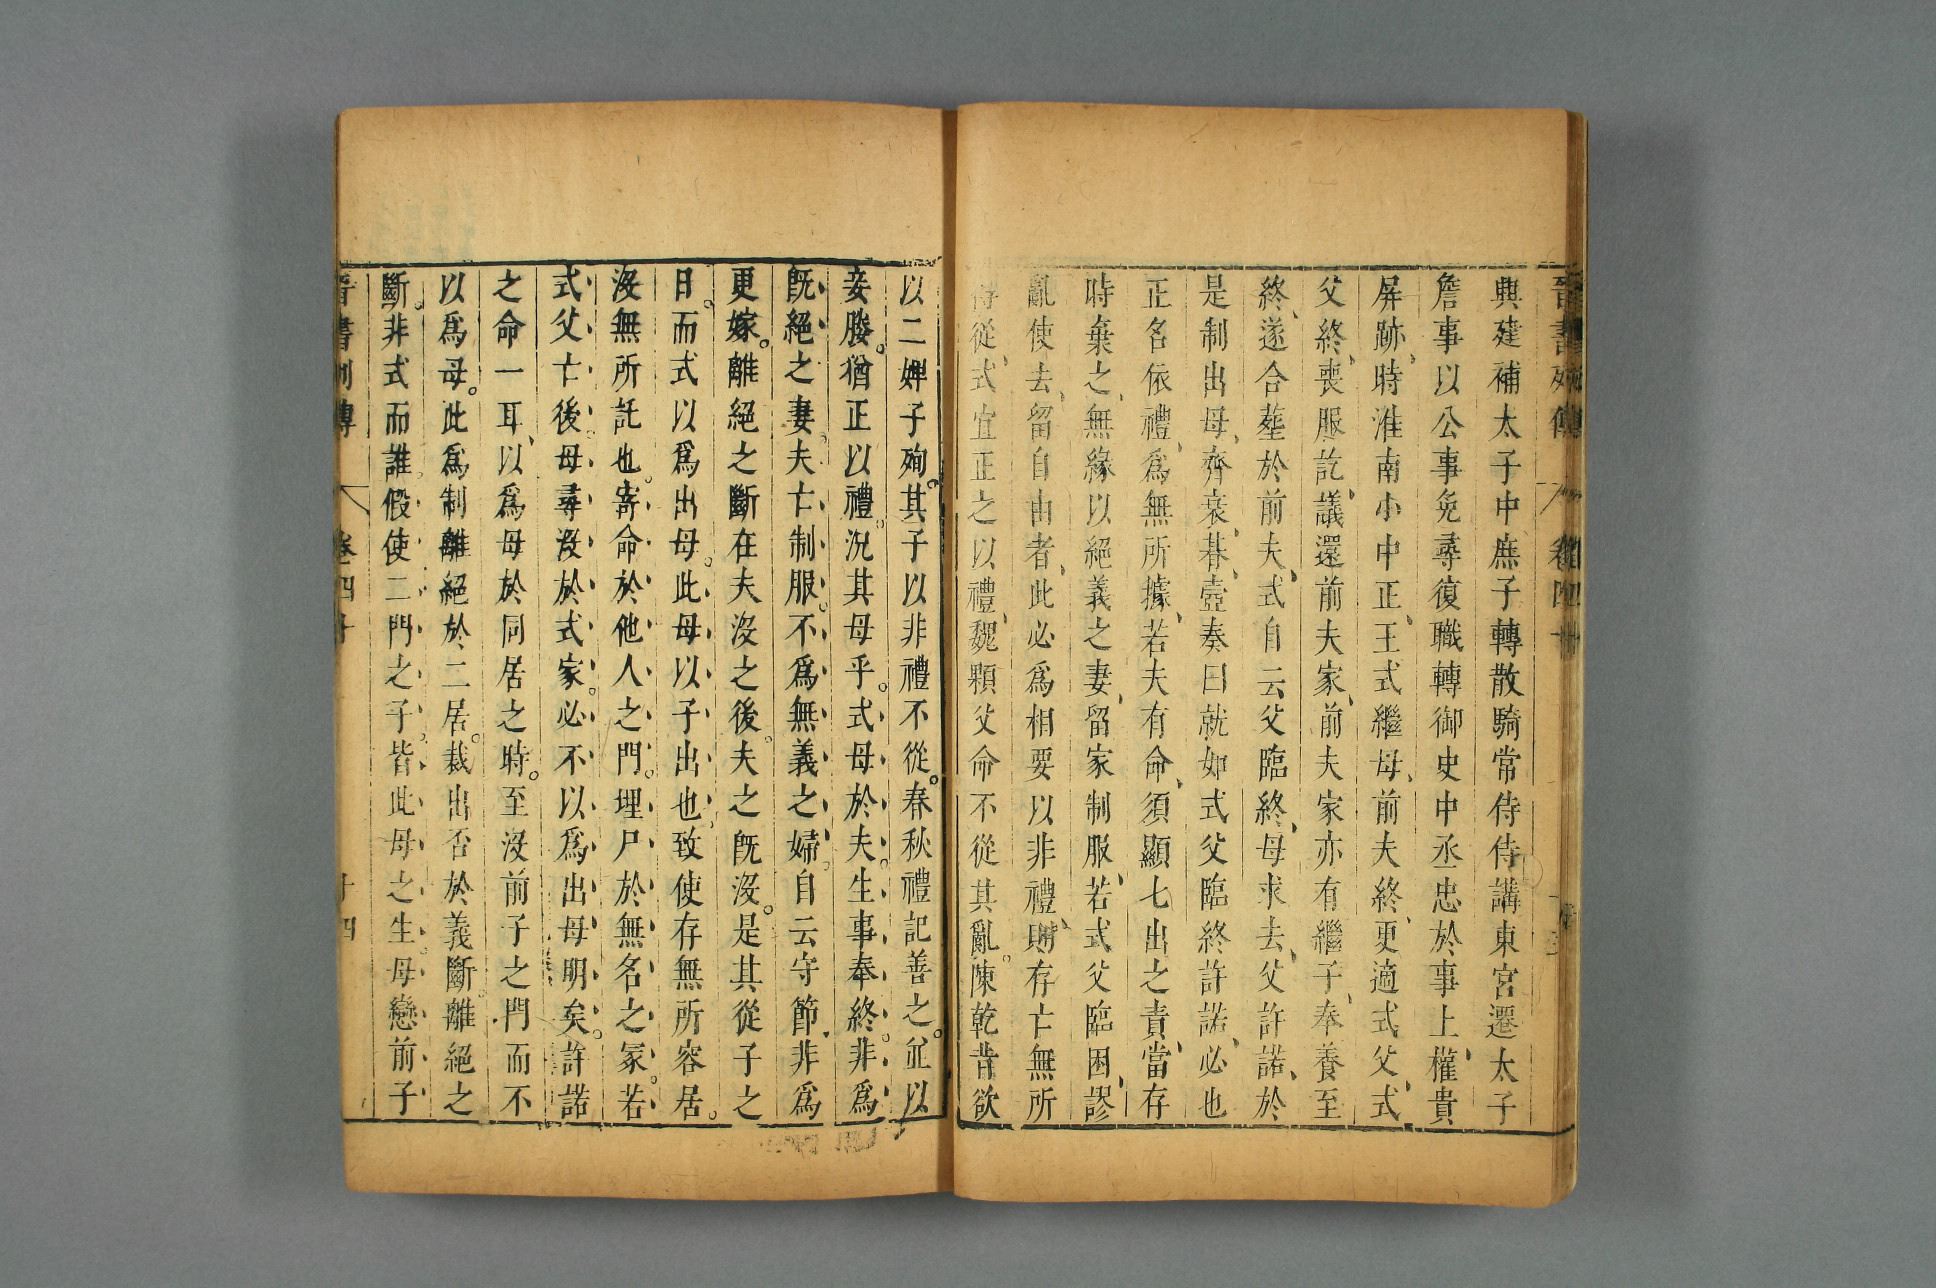 晉書列傳 卷四十
興建補太子中庶子轉散騎常侍侍講東宮遷太子
詹事以公事免尋復職轉御史中丞忠於事上權貴
屏跡時淮南小中正王式繼母前夫終更適式父式
父終喪服訖議還前夫家前夫家亦有繼子奉養至
終遂合葬於前夫式自云父臨終母求去父許諾於
是制出母齊衰朞壼奏曰就如式父臨終許諾必也
正名依禮爲無所據若夫有命須顯七出之責當存
時棄之無緣以絕義之妻留家制服若式父臨困謬
亂使去留自由者此必爲相要以非禮則存亡無所
得從式宜正之以禮魏顆父命不從其亂陳乾昔欲
以二婢子殉其子以非禮不從春秋禮記善之並以
妾媵猶正以禮況其母乎式母於夫生事奉終非爲
旣絕之妻夫亡制服不爲無義之婦自云守節非爲
更嫁離絕之斷在夫沒之後夫之旣沒是其從子之
日而式以爲出母此母以子出也致使存無所容居
沒無所託也寄命於他人之門埋尸於無名之冢若
式父亡後母尋沒於式家必不以爲出母明矣許諾
之命一耳以爲母於同居之時至沒前子之門而不
以爲母此爲制離絕於二居裁出否於義斷離絕之
斷非式而誰假使二門之子皆此母之生母戀前子
晉書列傳 卷四十 十四